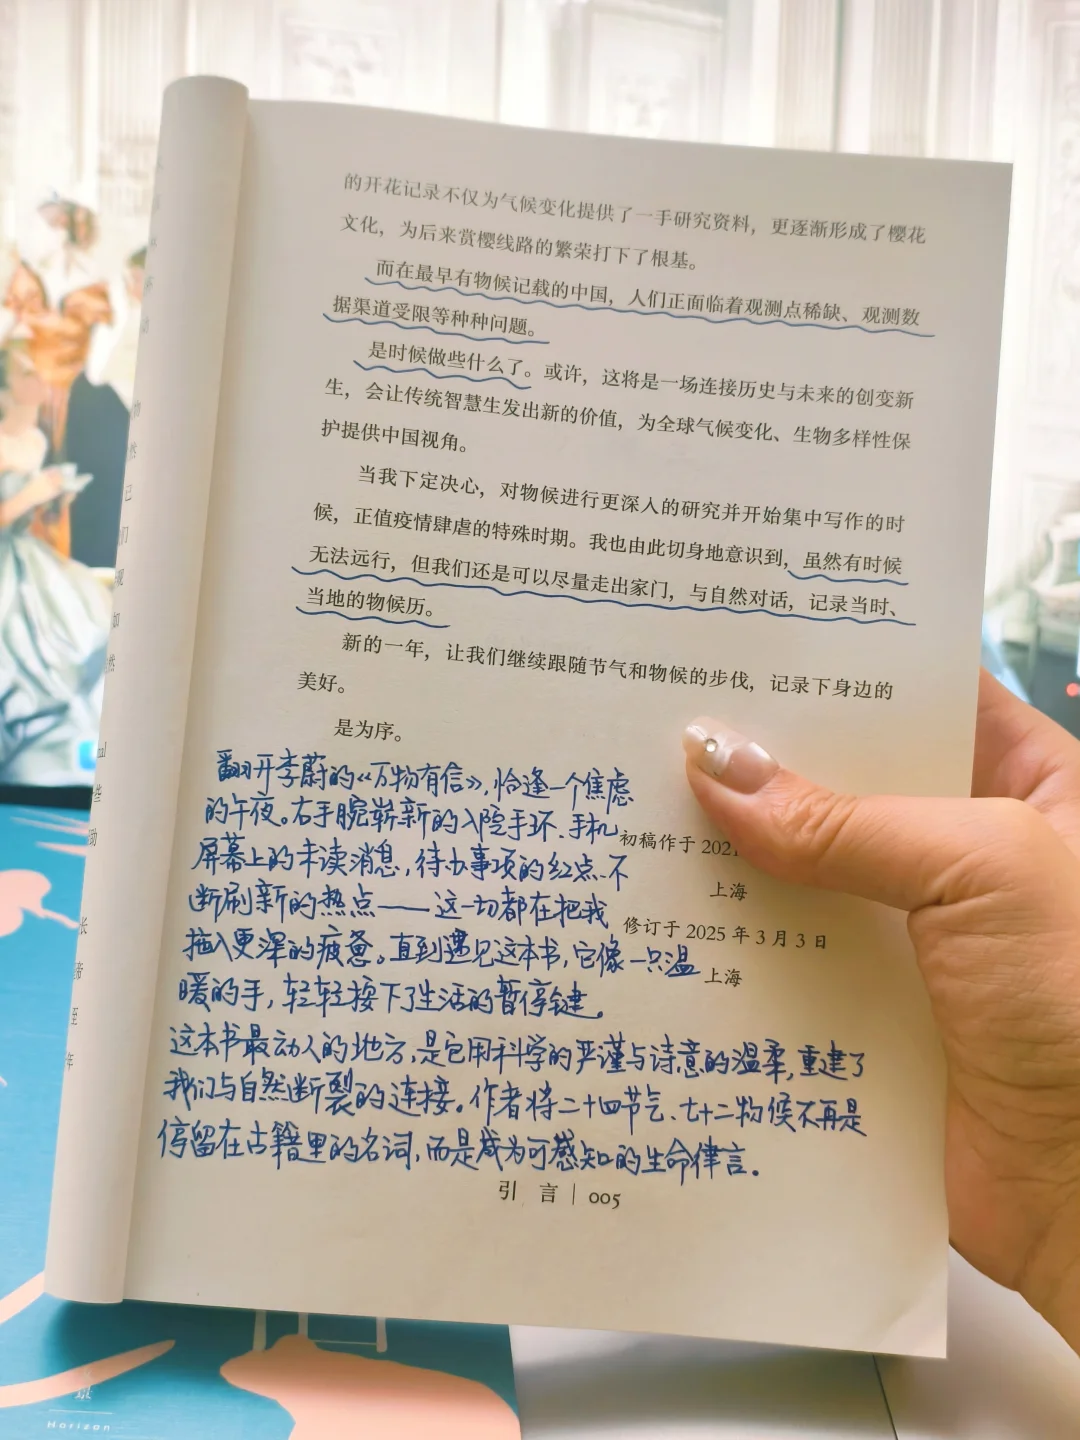 的开花记录不仅为气候变化提供了一手研究资料，更逐渐形成了樱花
文化，为后来赏樱线路的繁荣打下了根基。
而在最早有物候记载的中国，人们正面临着观测点稀缺、观测数
据渠道受限等种种问题。
是时候做些什么了。或许，这将是一场连接历史与未来的创变新
生，会让传统智慧生发出新的价值，为全球气候变化、生物多样性保
护提供中国视角。
当我下定决心，对物候进行更深入的研究并开始集中写作的时
候，正值疫情肆虐的特殊时期。我也由此切身地意识到，虽然有时候
无法远行，但我们还是可以尽量走出家门，与自然对话，记录当时、
当地的物候历。
新的一年，让我们继续跟随节气和物候的步伐，记录下身边的
美好。
是为序。
初稿作于 2021
上海
修订于 2025 年 3 月 3 日
上海
翻开李蔚的《万物有信》,恰逢一个焦虑
的午夜。右手腕崭新的入院手环、手机
屏幕上的未读消息,待办事项的红点、不
断刷新的热点——这一切都在把我
拖入更深的疲惫。直到遇见这本书,它像一只温
暖的手,轻轻按下了生活的暂停键。
这本书最动人的地方,是它用科学的严谨与诗意的温柔,重建了
我们与自然断裂的连接。作者将二十四节气、七十二物候不再是
停留在古籍里的名词,而是成为可感知的生命律言。
引 言 | 005
Horizon